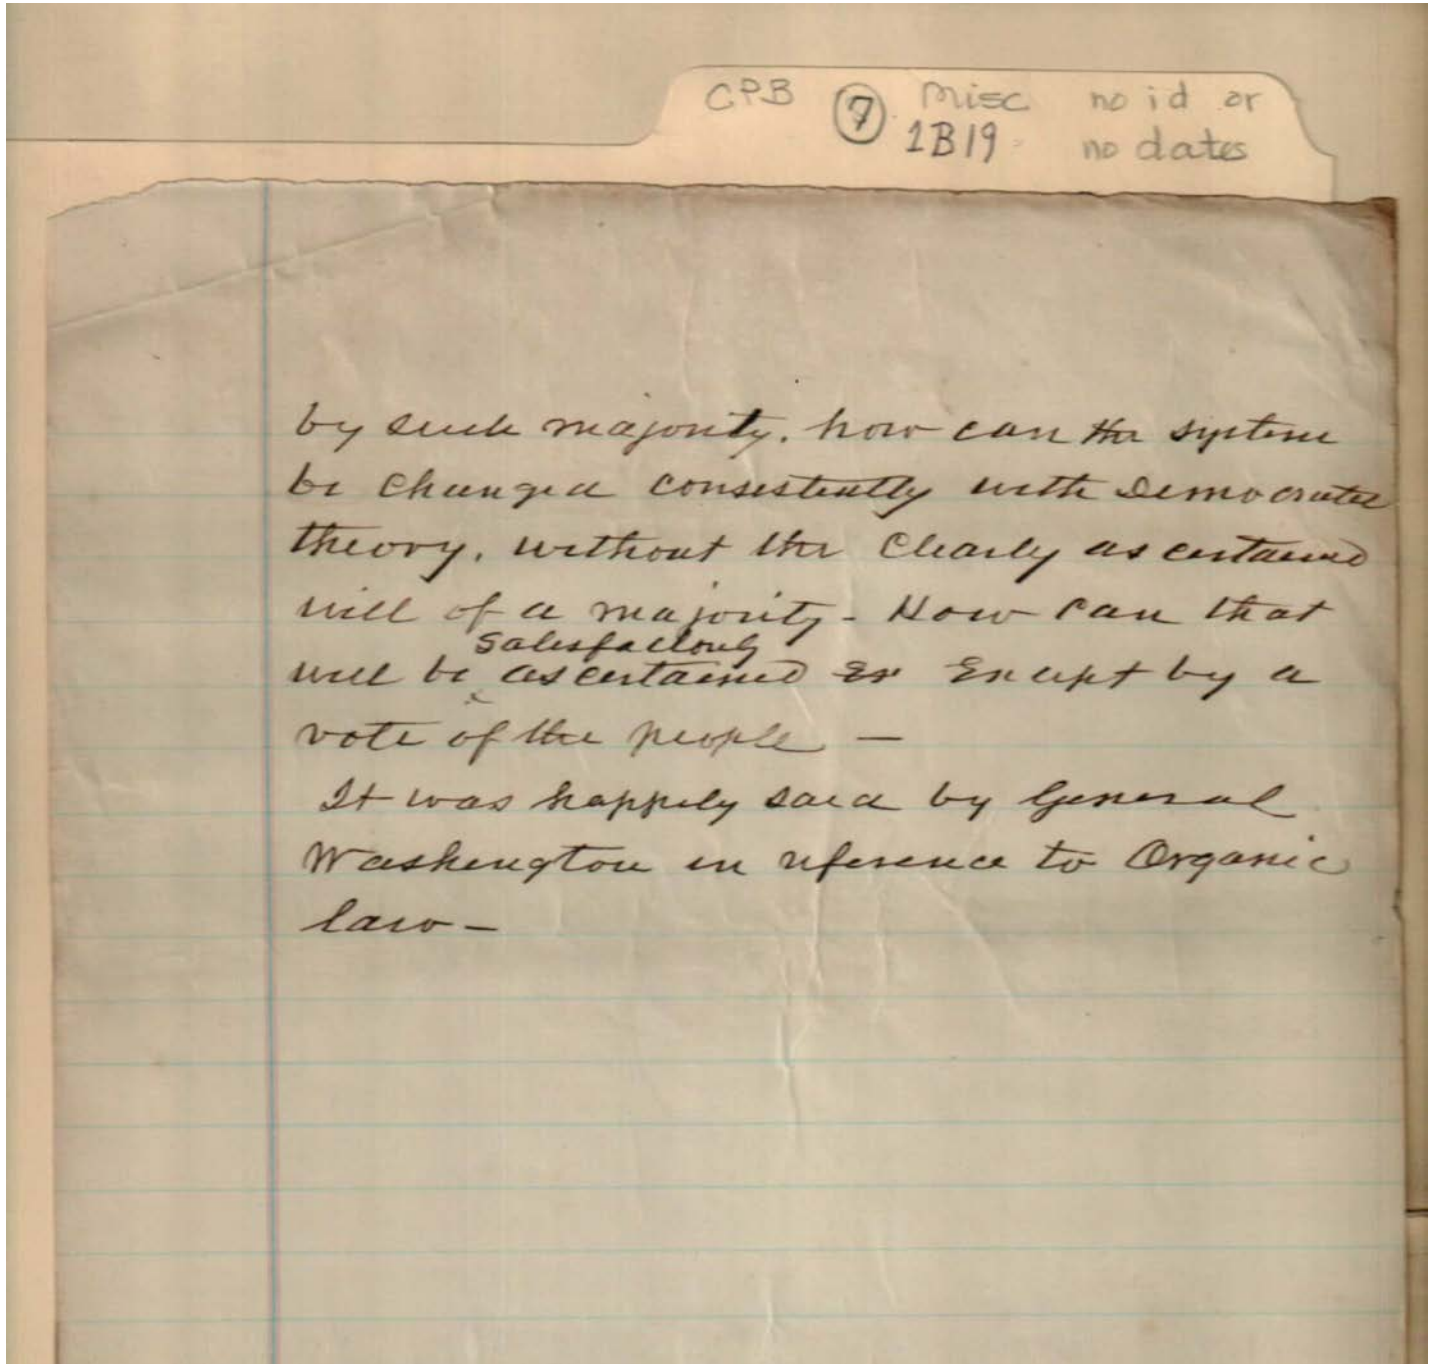 CPB 7 Misc no id or
1B19 no dates
by such majority. how can the system
be changed consistently with Democratic
theory, without the Clearly ascertained
will of a majority - How can that
satisfactorily
will be ascertained Ex Except by a
vote of the people —
It was happily said by General
Washington in reference to Organic
law -